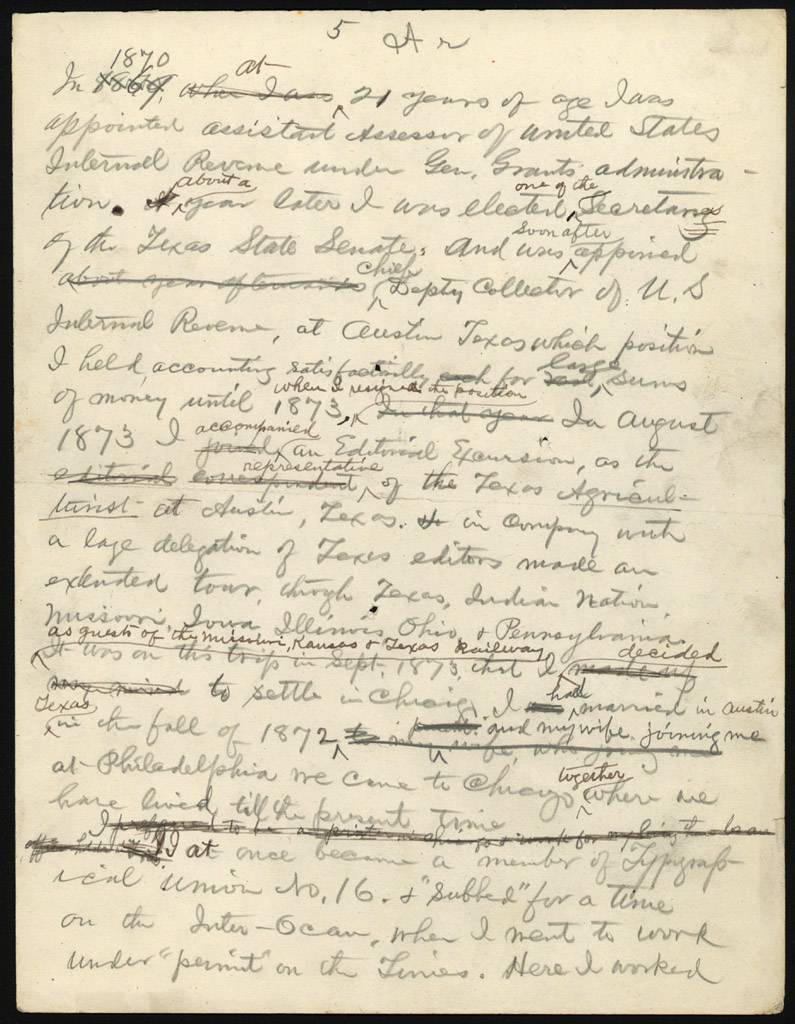 5 A r
1870 at
In 1869, when I was 21 years of age I was
appointed assistant Assessor of United States
Internal Revenue under Gen. Grants administra-
about a one of the
tion. A year later I was elected Secretarys
Soon after
of the Texas State Senate, And was appoined
Chief
about year afterwards Depty Collector of U. S
Internal Revenue, at Austin Texas which position
large
I held accounting satisfactorily for sums
when I resigned the position
of money until 1873, In that year In August
accompanied
1873 I joined an Editorial Excursion, as the
representative
editorial correspondent of the Texas Agricul-
turist at Austin, Texas. in Company with
a lage delegation of Texas editors made an
extended tour, throgh Texas, Indian Nation
Missouri, Iowa, Illinois, Ohio, & Pennsylvania.
as guests of the Missouri, Kansas & Texas Railway decided
It was on this trip in Sept. 1873, that I made up
my mind to settle in Chicag, I had married in Austin
Texas
in the fall of 1872, and my wife joining me
my wife who joing me
at Philadelphia we came to Chicago together where we
have lived till the present time
I to be a printer in Chicago & work for my living than
I at once became a member of Typograph-
ical Union No. 16. & "Subbed" for a time
on the Inter-Ocan, when I went to work
under "permit" on the Times. Here I worked